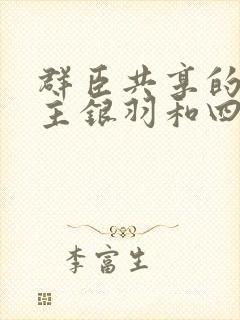 群臣共享的
主银羽和四
李富生